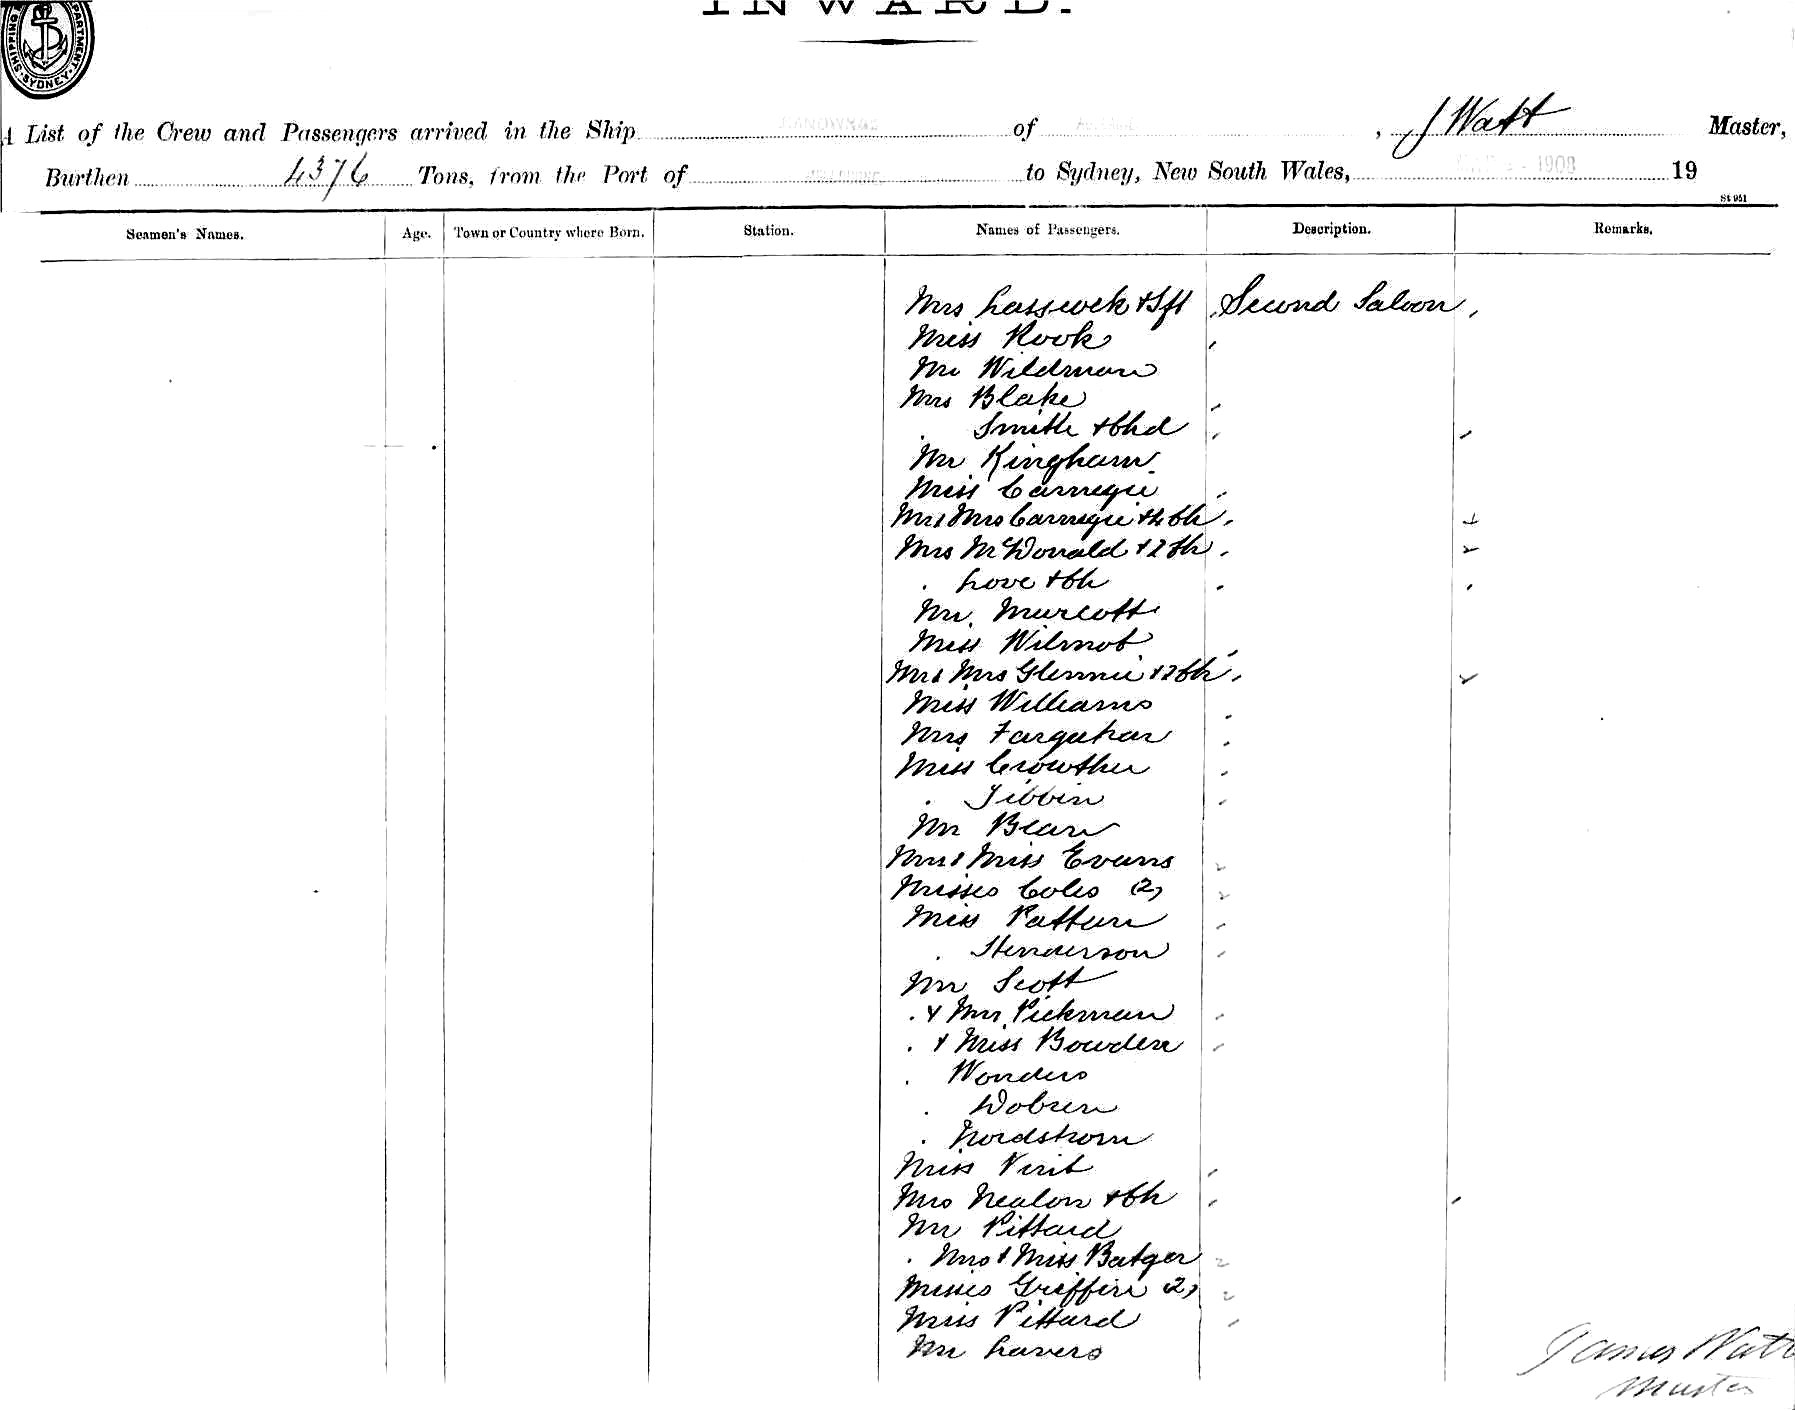 INWARD.
SHIPPING DEPARTMENT SYDNEY
A List of the Crew and Passengers arrived in the Ship of , J Watt Master,
Burthen 4376 Tons, from the Port of to Sydney, New South Wales, 1908 19
St 951
Seamen's Names. Age. Town or Country where Born. Station. Names of Passengers. Description. Remarks.
Mrs Second Saloon
Miss Rook
Mr Wildman
Mrs Blake
Smith + Chd
Mr Kingham
Miss Carnegie
Mr & Mrs Carnegie + 4 Ch
Mrs McDonald + 2 Ch
Love + Ch
Mr. Murcott
Miss Wilmot
Mr & Mrs Glennie + 2 Ch
Miss Williams
Mrs Farquhar
Miss Crowther
Tibbin
Mr Bean
Mrs & Miss Evans
Misses Coles (2)
Miss Patten
Henderson
Mr Scott
. & Mrs Pickman
. & Miss Bowden
. Wonders
. Dobsen
. Nordstrom
Miss
Mrs Nealon + Ch
Mr Pittard
. Mrs & Miss Batger
Misses Griffin (2)
Miss Pittard
Mr Lavers
James Watt
Master